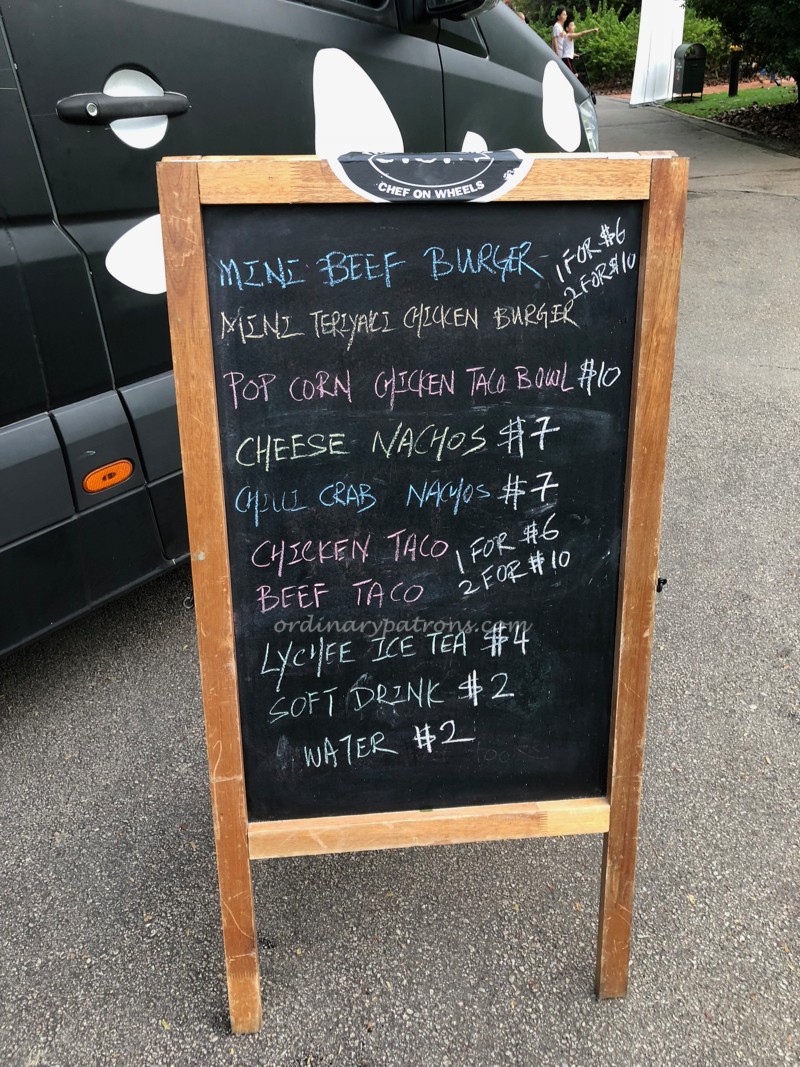 CHEF ON WHEELS
MINI BEEF BURGER 1 FOR $6
2 FOR $10
MINI TERIYAKI CHICKEN BURGER
POP CORN CHICKEN TACO BOWL $10
CHEESE NACHOS $7
CHILLI CRAB NACHOS $7
CHICKEN TACO 1 FOR $6
BEEF TACO 2 FOR $10
ordinarypatrons.com
LYCHEE ICE TEA $4
SOFT DRINK $2
WATER $2